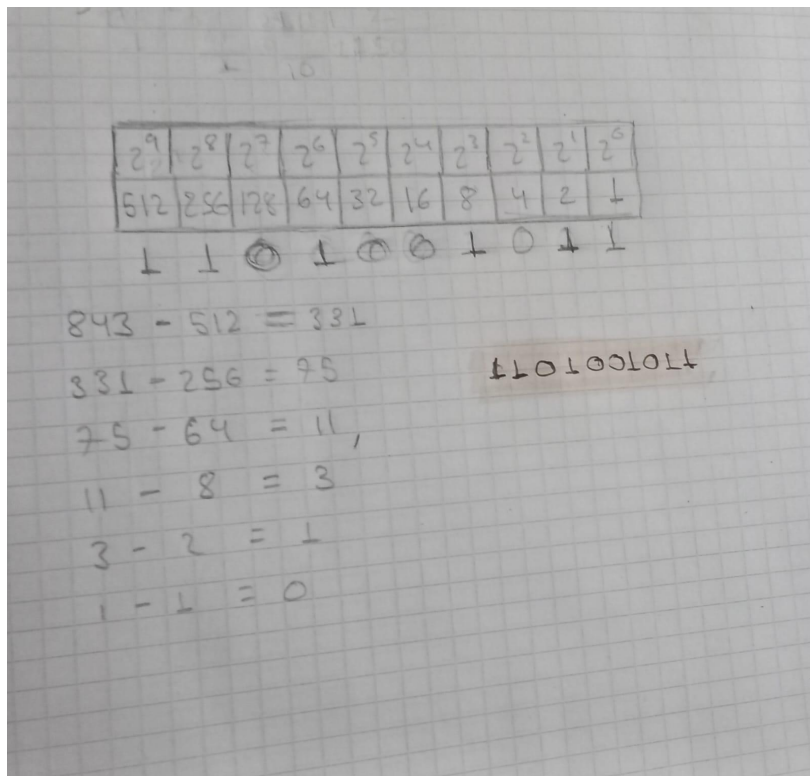 2⁹ 2⁸ 2⁷ 2⁶ 2⁵ 2⁴ 2³ 2² 2¹ 2⁰
512 256 128 64 32 16 8 4 2 1
1 1 0 1 0 0 1 0 1 1
843 - 512 = 331
331 - 256 = 75
1101001011
75 - 64 = 11,
11 - 8 = 3
3 - 2 = 1
1 - 1 = 0